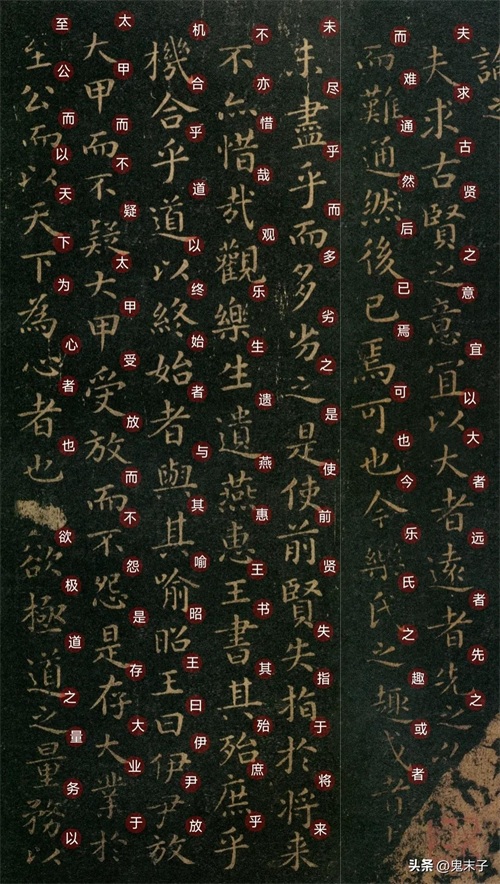 夫求古贤之意宜以大者远者先之
夫求古賢之意宜以大者遠者先之
而难通然后已焉可也今乐氏之趣或者
而難通然後已焉可也今樂氏之趣或者
未尽乎而多劣之是使前贤失指于将来
未盡乎而多劣之是使前賢失指於將来
不亦惜哉观乐生遗燕惠王书其殆庶乎
不亦惜哉觀樂生遺燕惠王書其殆庶乎
机合乎道以终始者与其喻昭王曰伊尹放
機合乎道以終始者與其喻昭王曰伊尹放
太甲而不疑太甲受放而不怨是存大业于
大甲而不疑大甲受放而不怨是存大業於
至公而以天下为心者也欲极道之量务以
至公而以天下為心者也欲極道之量務以
头条 @鬼末子